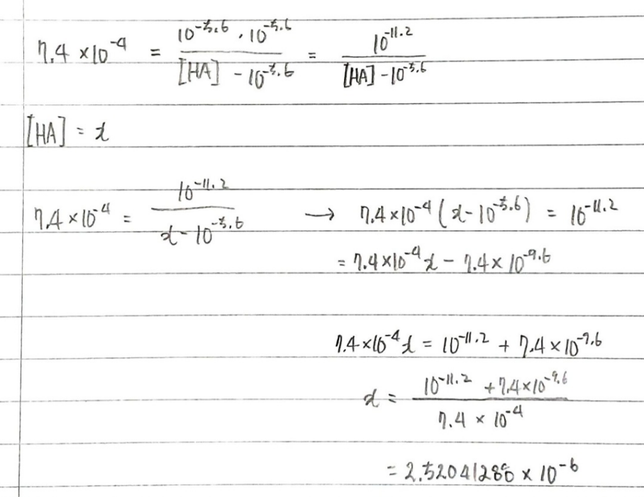 7.4 × 10⁻⁴ = (10⁻⁵·⁶ · 10⁻⁵·⁶) / ([HA] − 10⁻⁵·⁶) = 10⁻¹¹·² / ([HA] − 10⁻⁵·⁶)
[HA] = x
7.4 × 10⁻⁴ = 10⁻¹¹·² / (x − 10⁻⁵·⁶) → 7.4 × 10⁻⁴ (x − 10⁻⁵·⁶) = 10⁻¹¹·²
= 7.4 × 10⁻⁴ x − 7.4 × 10⁻⁹·⁶
7.4 × 10⁻⁴ x = 10⁻¹¹·² + 7.4 × 10⁻⁹·⁶
x = (10⁻¹¹·² + 7.4 × 10⁻⁹·⁶) / (7.4 × 10⁻⁴)
= 2.52041286 × 10⁻⁶